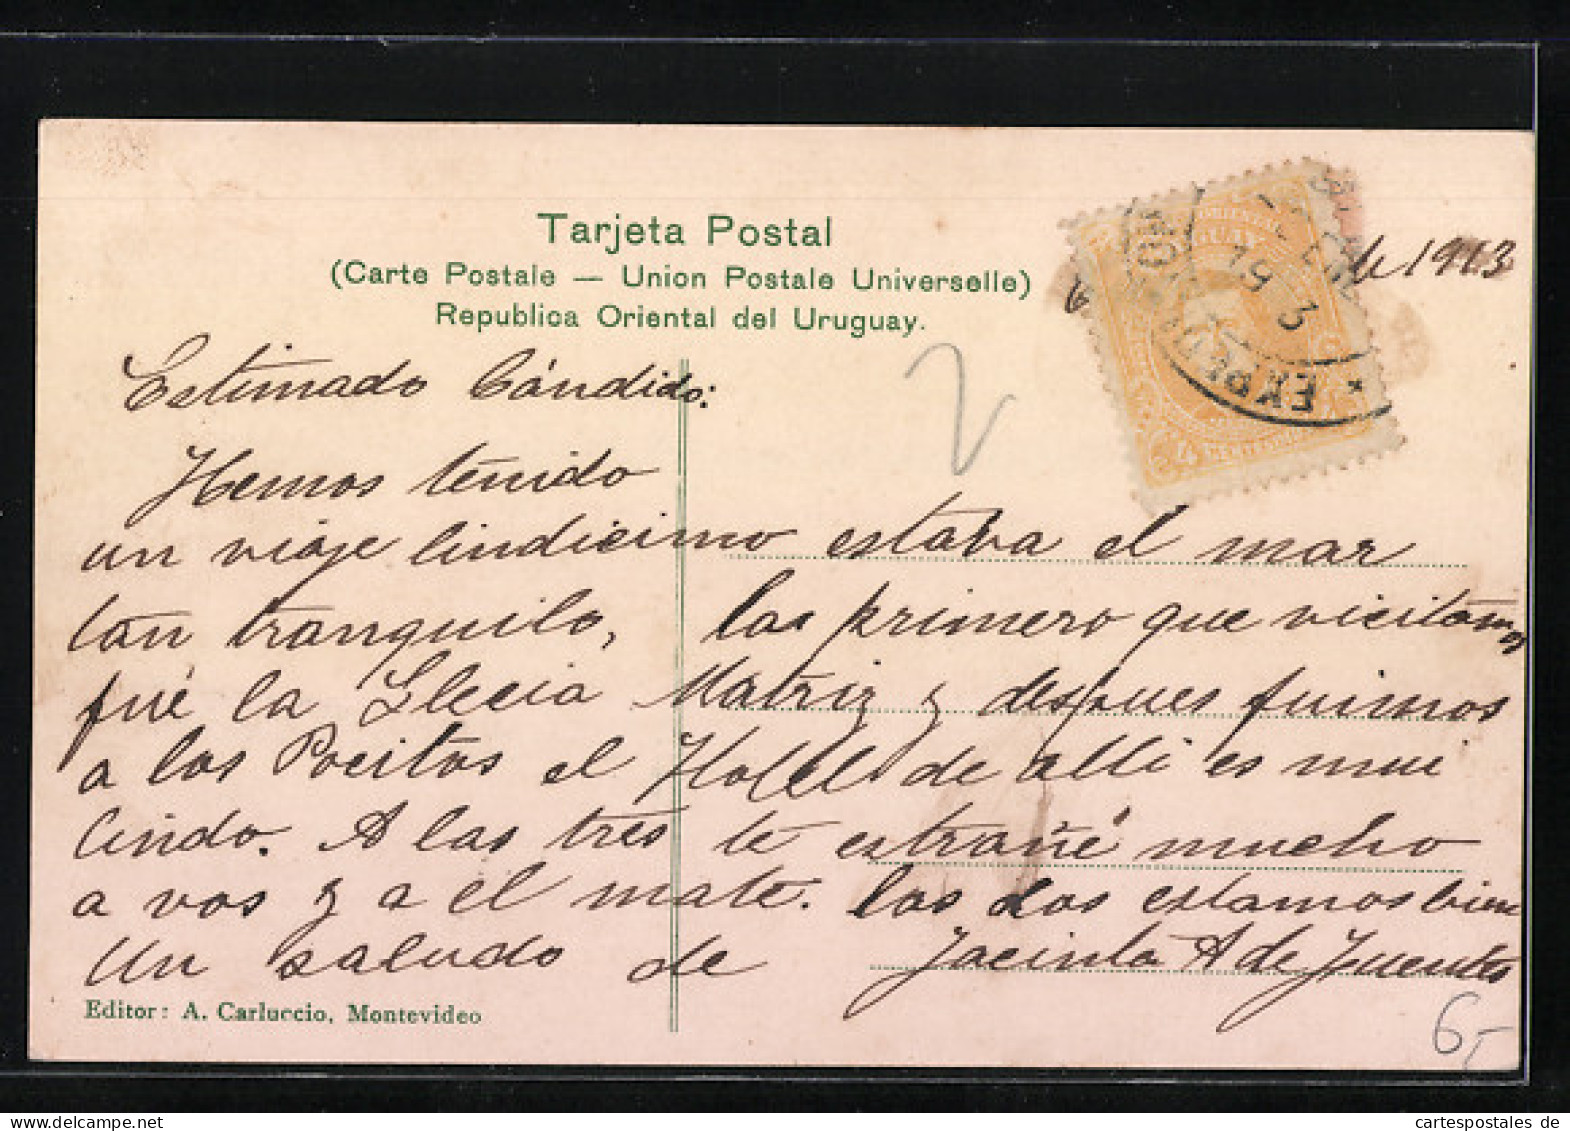 Tarjeta Postal
(Carte Postale — Union Postale Universelle)
Republica Oriental del Uruguay.
de 1913
Estimado Cándido:
Hemos tenido
un viaje lindicimo estaba el mar
tan tranquilo, las primero que vicitamos
fué la Llecia Matriz y despues fuimos
a las Pocitos el Hotel de alli es mui
lindo. A las tres te estrañé mucho
a vos y a el mate. las dos estamos bien
Un saludo de Jacinta A de Fuentes
Editor: A. Carluccio, Montevideo
2
6,-
cartespostales de